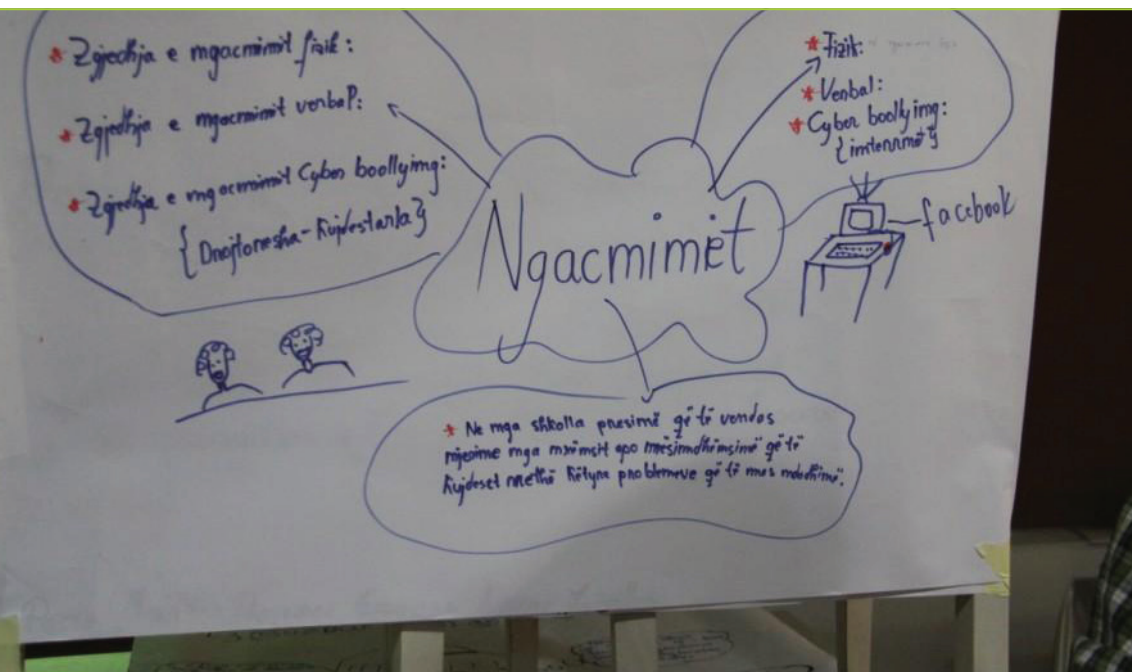 * Zgjedhja e ngacmimit fizik:
* Zgjedhja e ngacmimit verbal:
* Zgjedhja e ngacmimit Cyber boollying:
{Drejtoresha-Kujdestarla}
Ngacmimet
* Fizik:
* Verbal:
* Cyber boollying:
{internmet}
facebook
* Ne nga shkolla presimë që të vendos
nga mësimdhënsinë që të
Kujdeset rrethë Këtyre problemeve që të mos ndodhinë.